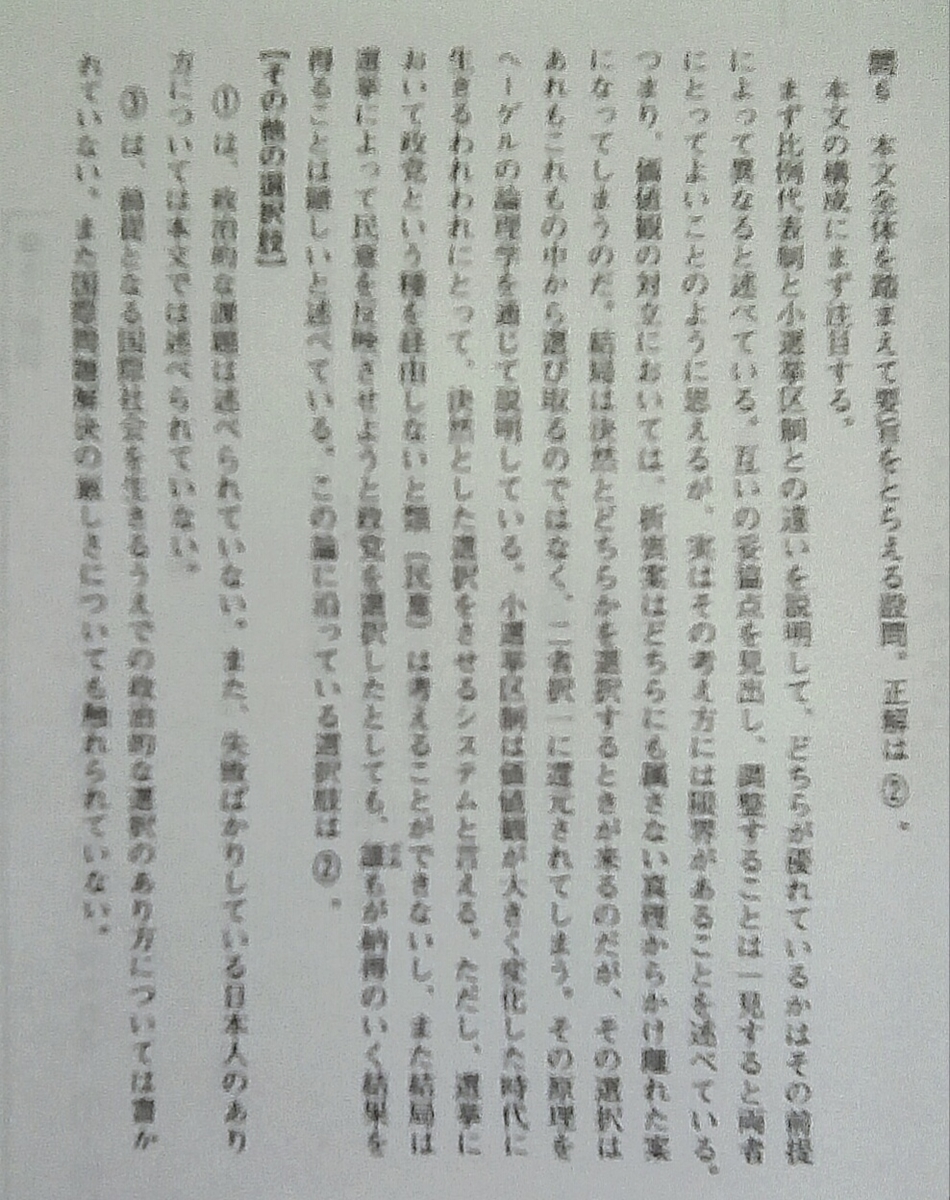 問6　本文全体を踏まえて要旨をとらえる設問。正解は②。
本文の構成にまず注目する。
まず比例代表制と小選挙区制との違いを説明して、どちらが優れているかはその前提
によって異なると述べている。互いの妥協点を見出し、調整することは一見すると両者
にとってよいことのように思えるが、実はその考え方には限界があることを述べている。
つまり、価値観の対立においては、折衷案はどちらにも属さない真理からかけ離れた案
になってしまうのだ。結局は決然とどちらかを選択するときが来るのだが、その選択は
あれもこれもの中から選び取るのではなく、二者択一に還元されてしまう。その原理を
ヘーゲルの論理学を通じて説明している。小選挙区制は価値観が大きく変化した時代に
生きるわれわれにとって、決然とした選択をさせるシステムと言える。ただし、選挙に
おいて政党という種を経由しないと類（民意）は考えることができないし、また結局は
選挙によって民意を反映させようと政党を選択したとしても、誰もが納得のいく結果を
得ることは難しいと述べている。この論に沿っている選択肢は②。
【その他の選択肢】
①は、政治的な課題は述べられていない。また、失敗ばかりしている日本人のあり
方については本文では述べられていない。
③は、前提となる国際社会を生きるうえでの政治的な選択のあり方については書か
れていない。また国際問題解決の難しさについても触れられていない。